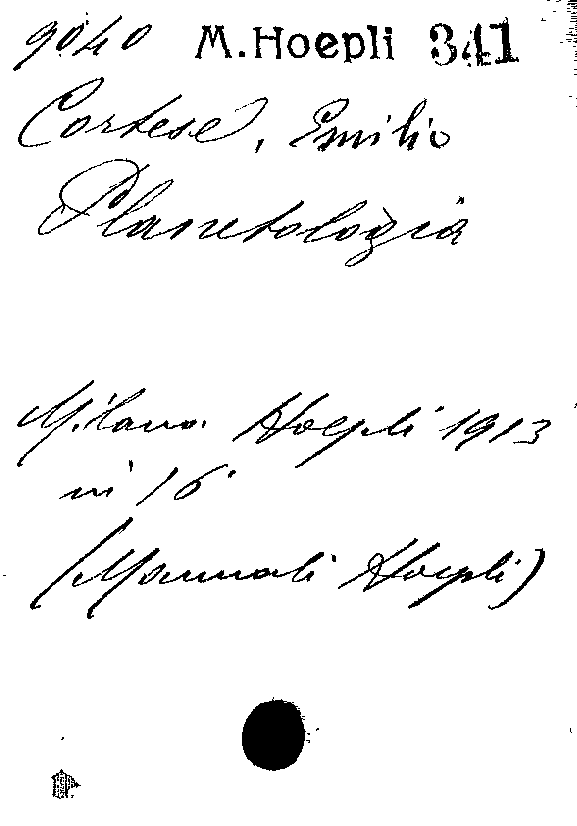 9040 M. Hoepli 341
Cortese, Emilio
Planetologia
Milano. Hoepli 1913
in 16°
(Manuali Hoepli)